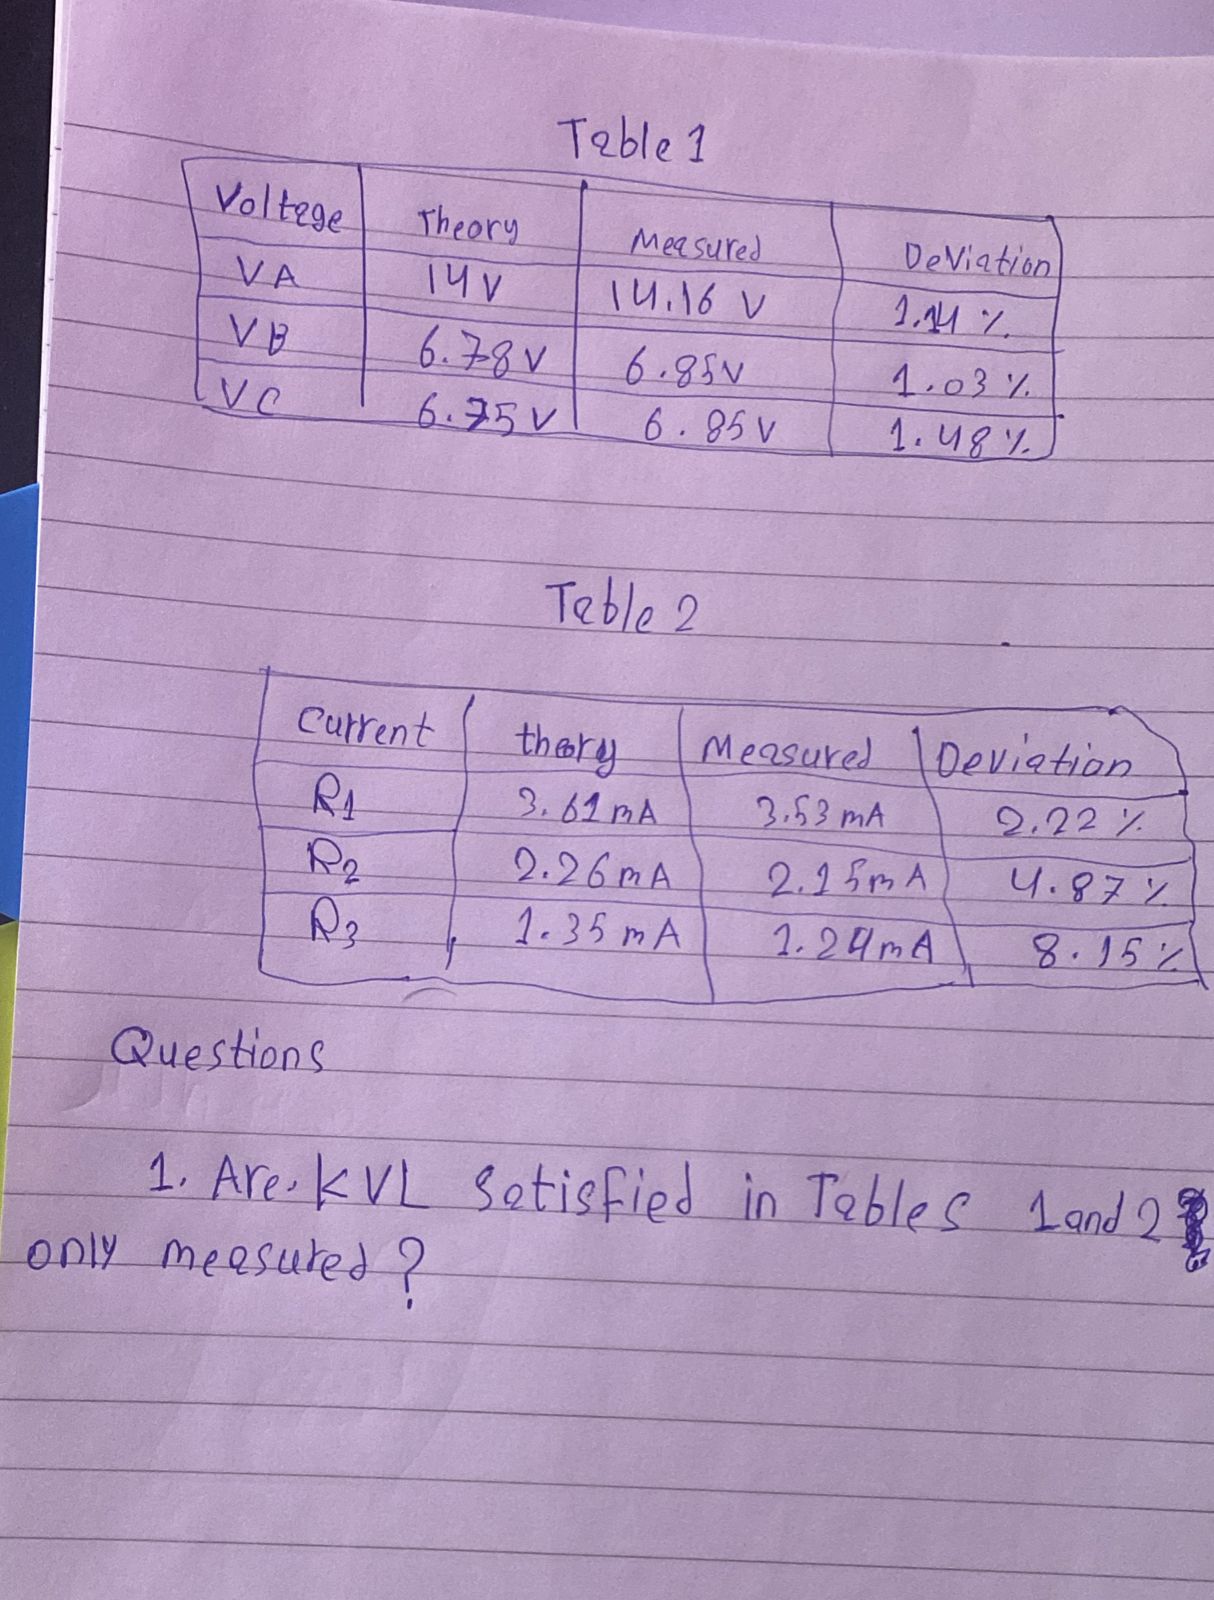 Table 1
Voltage Theory Measured Deviation
VA 14V 14.16 V 1.14 %
VB 6.78V 6.85V 1.03 %
VC 6.75V 6.85V 1.48%
Table 2
Current theory Measured Deviation
R1 3.61mA 3.53mA 2.22%
R2 2.26mA 2.15mA 4.87%
R3 1.35mA 1.24mA 8.15%
Questions
1. Are. KVL Satisfied in Tables 1 and 2
only measured?